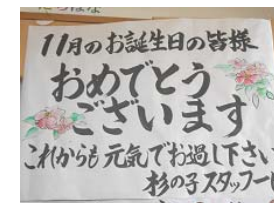 11月のお誕生日の皆様
おめでとう
ございます
これからも元気でお過し下さい
杉の子スタッフ一